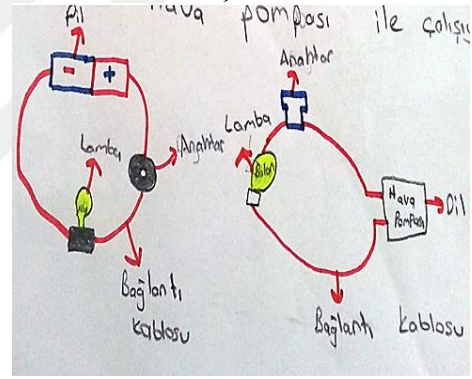 Hava pompası ile çalışı
Pil
- +
Lamba
Anahtar
Bağlantı
kablosu
Anahtar
Lamba
Balon
Hava
Pompası
Pil
Bağlantı kablosu